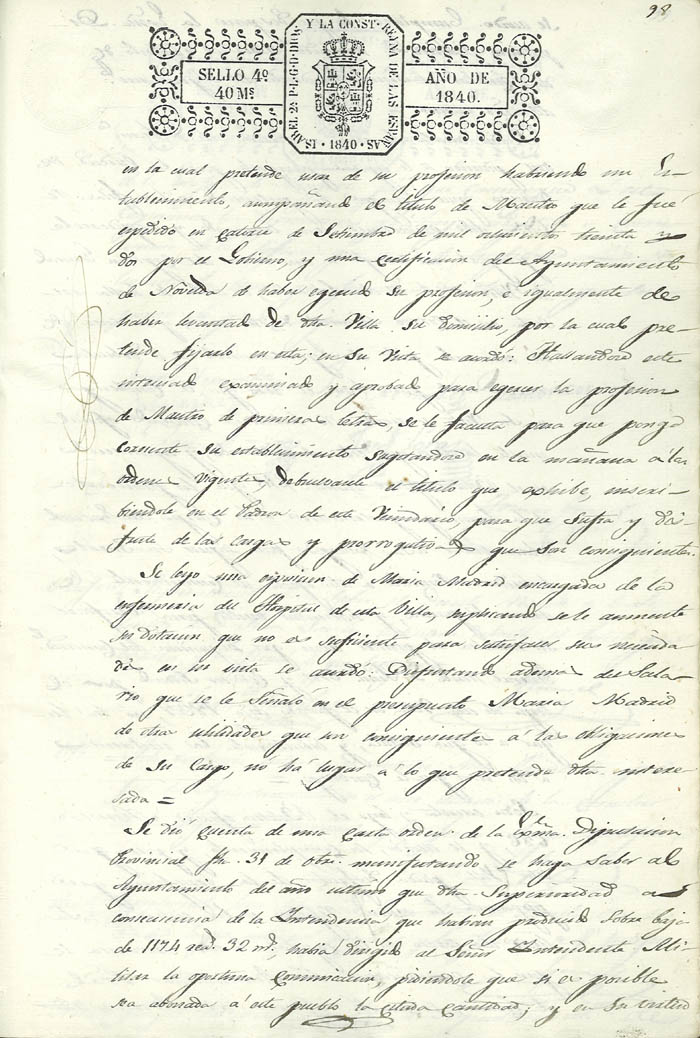 98
SELLO 4º
40 Ms
ISABEL 2ª P. L. G. D. DIOS Y LA CONST. REYNA DE LAS ESPAÑAS
· 1840 ·
AÑO DE
1840.
en la cual pretende usar de su profesion habriendo un Es-
tablecimiento, acompañando el titulo de Maestro que le fue
expedido en catorce de Setiembre de mil ochocientos treinta y
dos por el Gobierno, y una certificacion del Ayuntamiento
de Novelda de haber egercido su profesion, e igualmente de
haber levantado de dha. Villa su domicilio, por la cual pre-
tende fijarlo en esta; en su vista se acordó: Hallandose este
interesado examinado y aprobado para egercer la profesion
de Maestro de primeras letras, se le faculta para que ponga
corriente su establecimiento sugetandose en la mañana á las
ordenes vigentes debuelvasele el titulo que exhibe, inscri-
biendole en el Padron de este Vecindario, para que sufra y dis-
frute de las cargas y prorrogativas que son consiguientes.
Se leyo una esposicion de Maria Madrid encargada de la
enfermeria del Hospital de esta Villa, suplicando se le aumente
su dotacion que no es suficiente para satisfacer sus necesida-
des en su vista se acordó: Disfrutando ademas del Sala-
rio que se le señaló en el presupuesto Maria Madrid
de otras utilidades que son consiguientes á las obligaciones
de su cargo, nó há lugar á lo que pretende dha. intere-
sada =
Se dió cuenta de una carta orden de la Exma. Diputacion
Provincial fha. 31 de Obre. manifestando se haga saber al
Ayuntamiento del año ultimo que dha. Superioridad a
consecuencia de la Intendencia que habian producido sobre baja
de 1174 rs. 32 ms., habia dirigido al Señor Intendente Mi-
litar la oportuna comunicacion, pidiendole que si es posible
sea abonada á este pueblo la citada cantidad; y en su vista